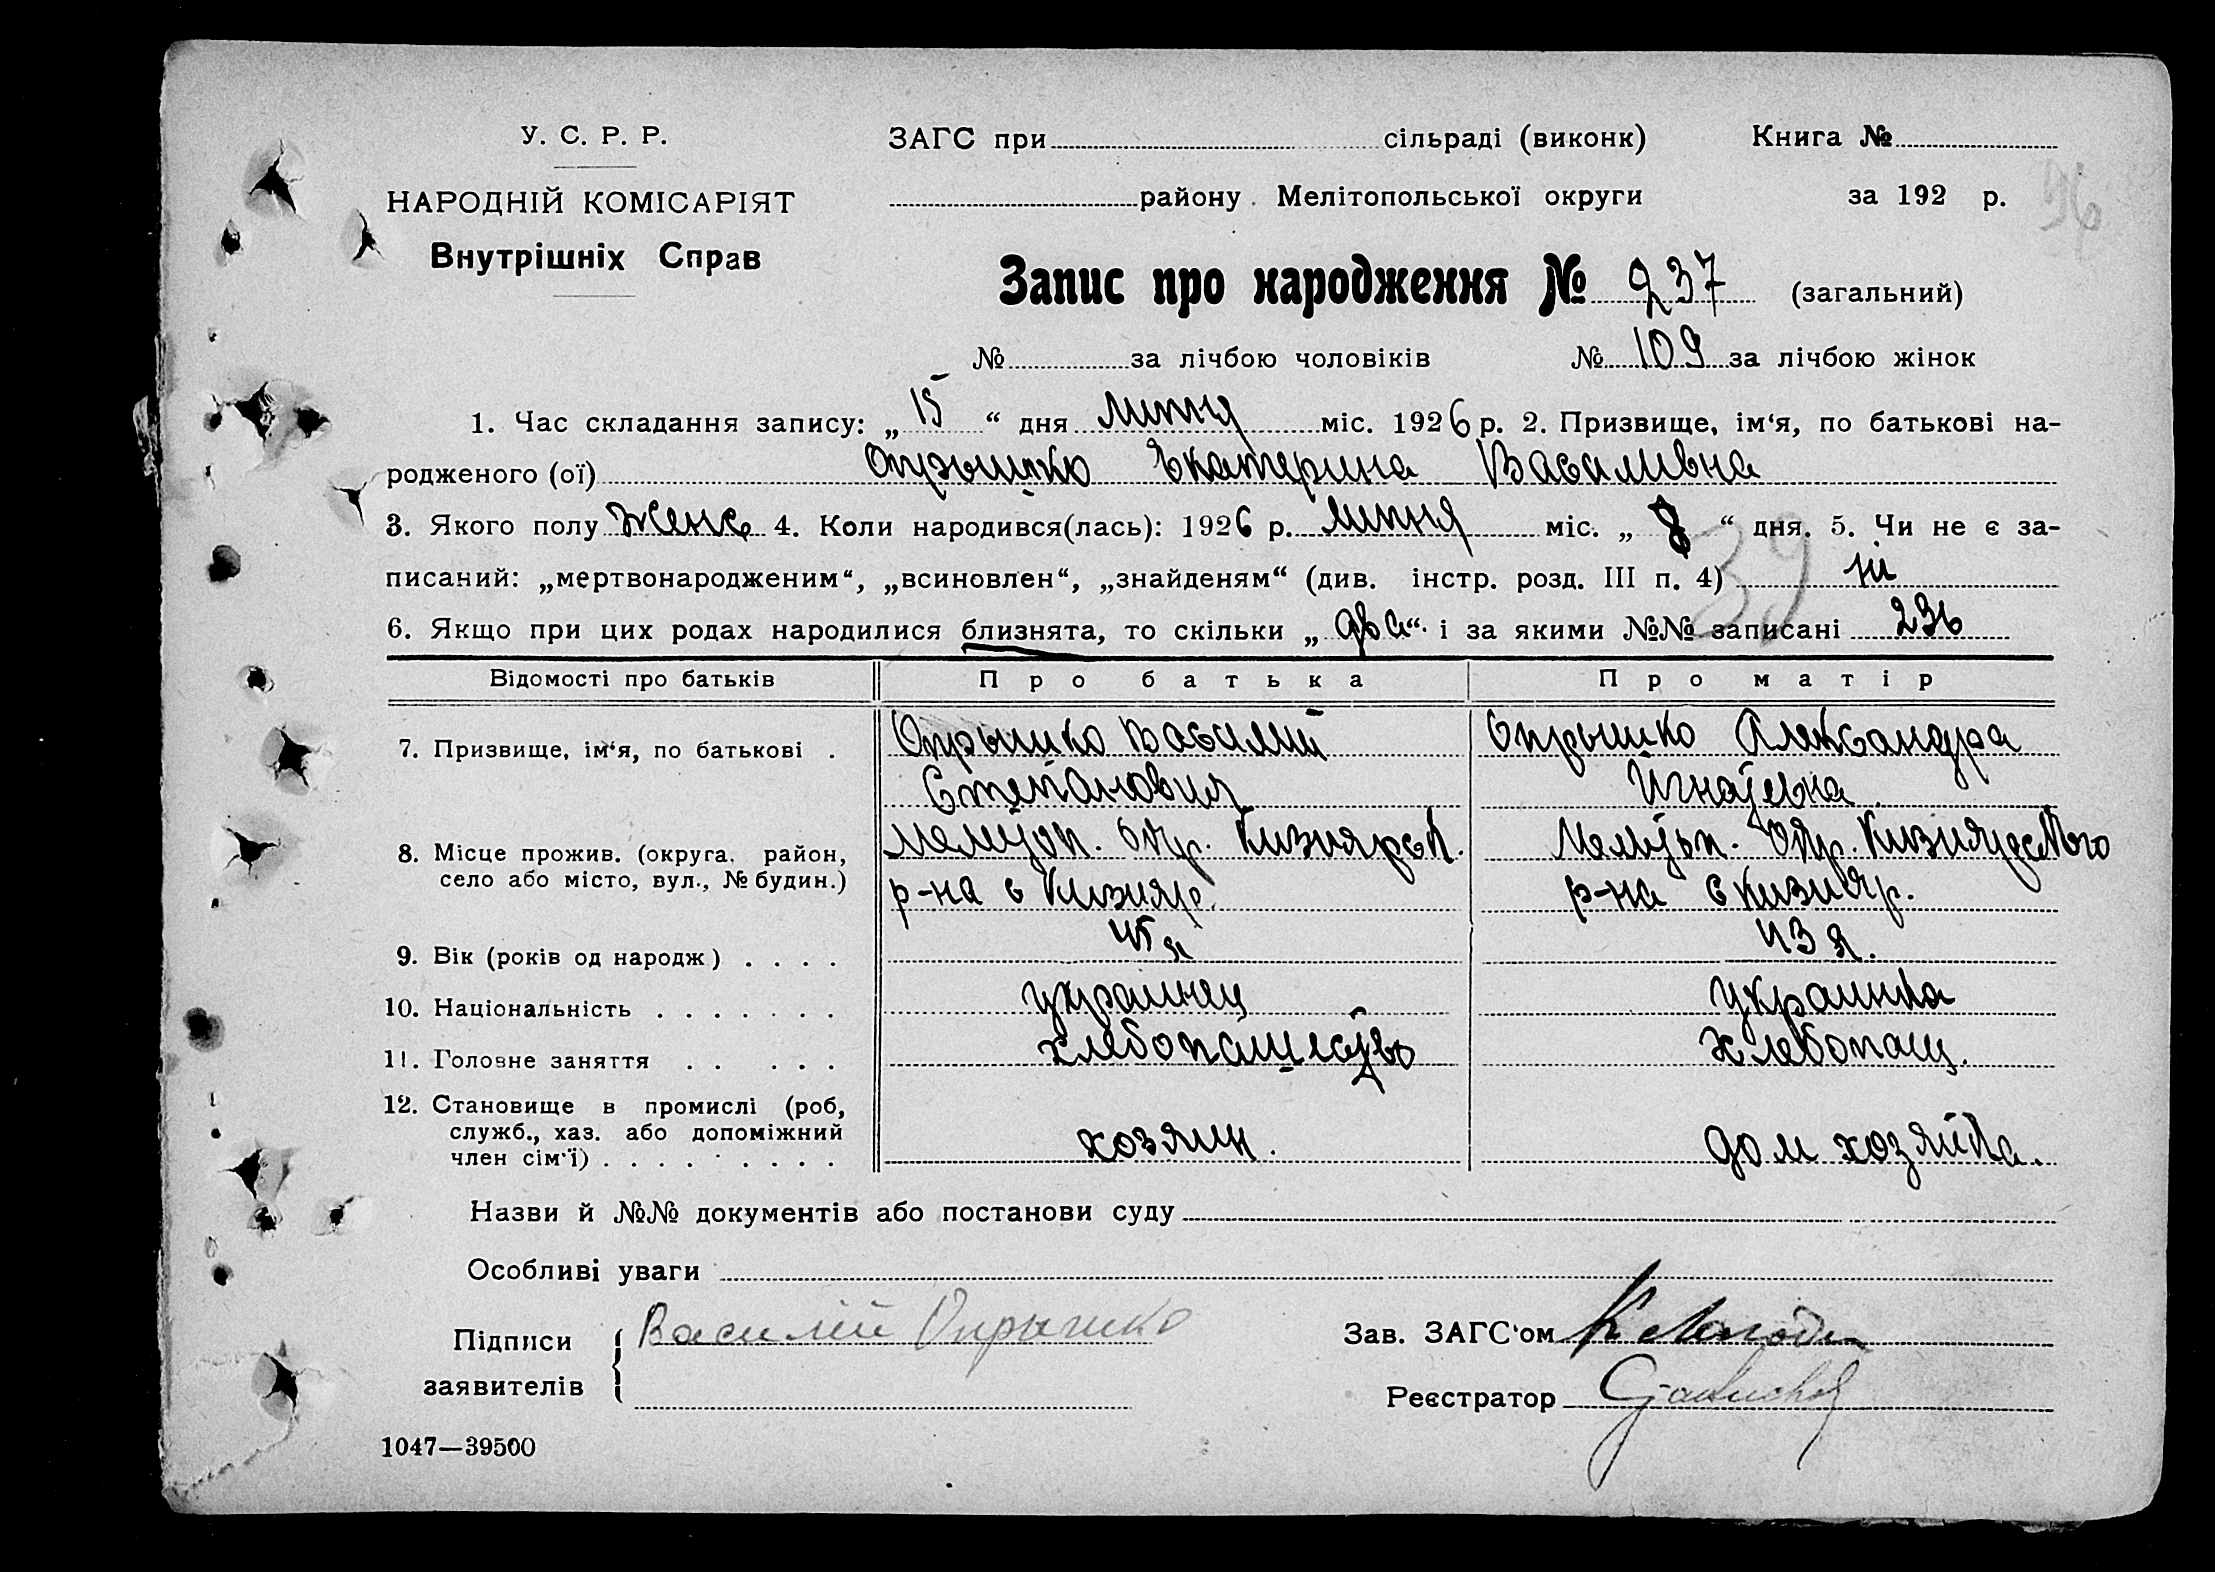 У. С. Р. Р.
НАРОДНІЙ КОМІСАРІЯТ
Внутрішніх Справ
ЗАГС при сільраді (виконк) Книга №
району Мелітопольської округи за 192 р.
Запис про народження № 237 (загальний)
№ за лічбою чоловіків № 109 за лічбою жінок
1. Час складання запису: „ 15 “ дня липня міс. 1926 р. 2. Призвище, ім‘я, по батькові на-
родженого (ої) Опрышко Екатерина Василивна
3. Якого полу женс 4. Коли народився(лась): 1926 р. липня міс. „ 8 “ дня. 5. Чи не є за-
писаний: „мертвонародженим“, „всиновлен“, „знайденям“ (див. інстр. розд. III п. 4) ні
6. Якщо при цих родах народилися близнята, то скільки „ два “ і за якими №№ записані 236
39
Відомості про батьків Про батька Про матір
7. Призвище, ім‘я, по батькові . Опрышко Василий Опрышко Александра
Степанович Игнатевна
8. Місце прожив. (округа, район, Мелитоп. Окр. Кизиярск. Мелитоп. Окр. Кизиярського
село або місто, вул., № будин.) р-на с Кизияр. р-на с Кизияр.
9. Вік (років од народж) . . . . 45 л 43 л.
10. Національність . . . . . . . украинец украинка
11. Головне заняття . . . . . хлебопашество хлебопащ.
12. Становище в промислі (роб,
служб., хаз. або допоміжний хозяин. дом хозяйка.
член сім‘ї) . . . . . . . . .
Назви й №№ документів або постанови суду
Особливі уваги
Підписи Василий Опрышко Зав. ЗАГС‘ом
заявителів Реєстратор
1047—39500